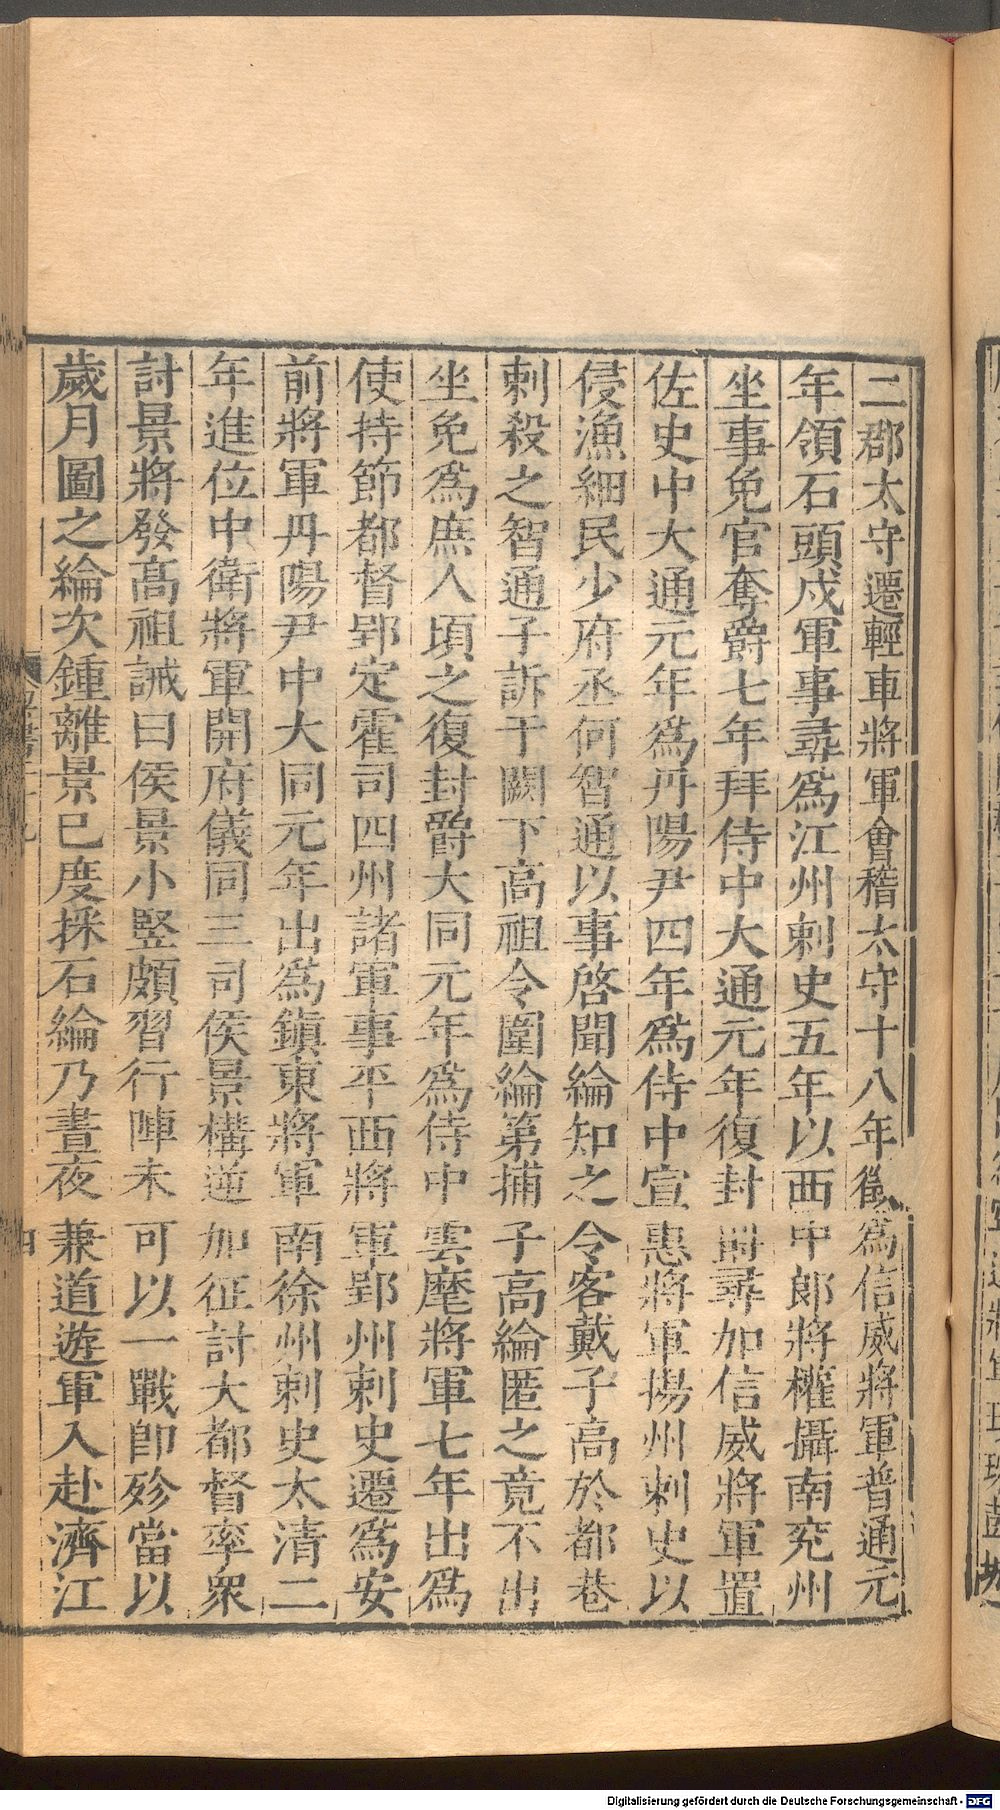 二郡太守遷輕車將軍會稽太守十八年徵爲信威將軍普通元
年領石頭戍軍事尋爲江州刺史五年以西中郎將權攝南兖州
坐事免官奪爵七年拜侍中大通元年復封爵尋加信威將軍置
佐史中大通元年爲丹陽尹四年爲侍中宣惠將軍揚州刺史以
侵漁細民少府丞何智通以事啓聞綸知之令客戴子高於都巷
刺殺之智通子訴于闕下高祖令圍綸第捕子高綸匿之竟不出
坐免爲庶人頃之復封爵大同元年爲侍中雲麾將軍七年出爲
使持節都督郢定霍司四州諸軍事平西將軍郢州刺史遷爲安
前將軍丹陽尹中大同元年出爲鎮東將軍南徐州刺史太清二
年進位中衛將軍開府儀同三司侯景構逆加征討大都督率衆
討景將發高祖誡曰侯景小竪頗習行陣未可以一戰卽殄當以
歲月圖之綸次鍾離景已度採石綸乃晝夜兼道遊軍入赴濟江
Digitalisierung gefördert durch die Deutsche Forschungsgemeinschaft - DFG